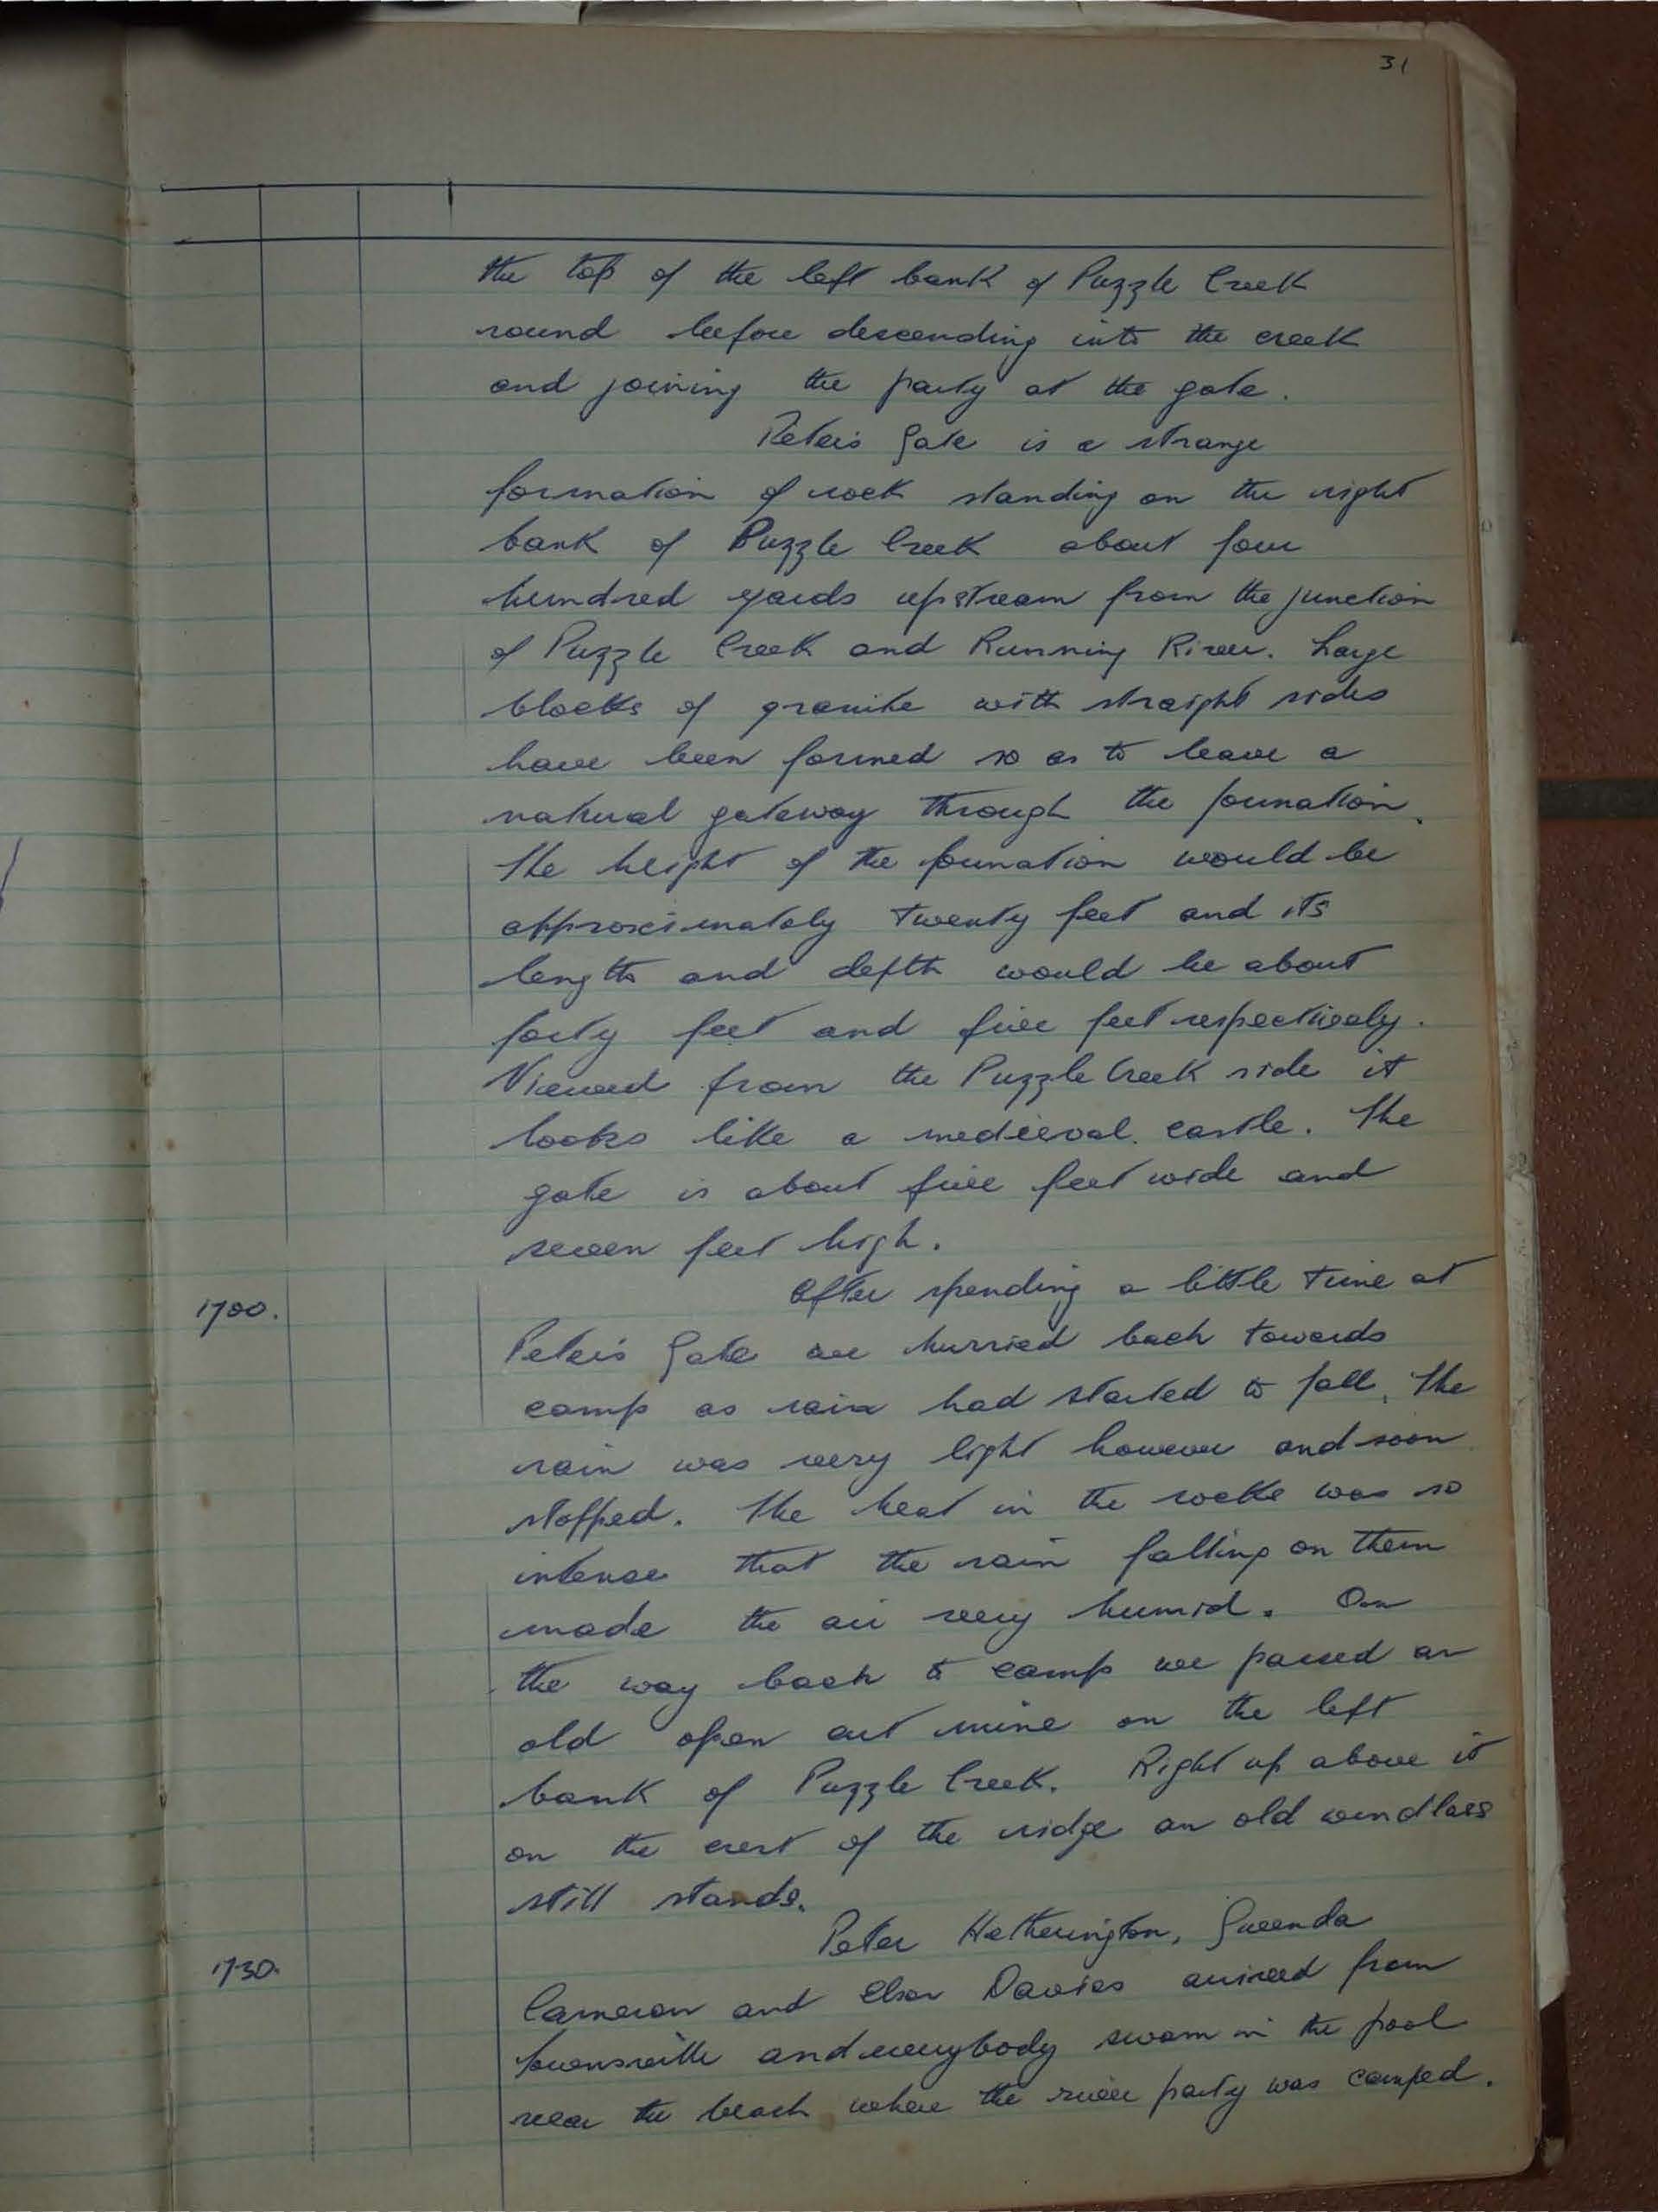 31
the top of the left bank of Puzzle Creek
round before descending into the creek
and joining the party at the gate.
Peter's Gate is a strange
formation of rock standing on the right
bank of Puzzle Creek about four
hundred yards upstream from the junction
of Puzzle Creek and Running River. Large
blocks of granite with straight sides
have been formed so as to leave a
natural gateway through the formation.
The height of the formation would be
approximately twenty feet and its
length and depth would be about
forty feet and five feet respectively.
Viewed from the Puzzle Creek side it
looks like a medieval castle. The
gate is about five feet wide and
seven feet high.
1700. After spending a little time at
Peter's Gate we hurried back towards
camp as rain had started to fall. The
rain was very light however and soon
stopped. The heat in the rocks was so
intense that the rain falling on them
made the air very humid. On
the way back to camp we passed an
old open cut mine on the left
bank of Puzzle Creek. Right up above it
on the crest of the ridge an old windlass
still stands.
1730. Peter Hetherington, Gwenda
Cameron and Elson Davies arrived from
Townsville and everybody swam in the pool
near the beach where the river party was camped.